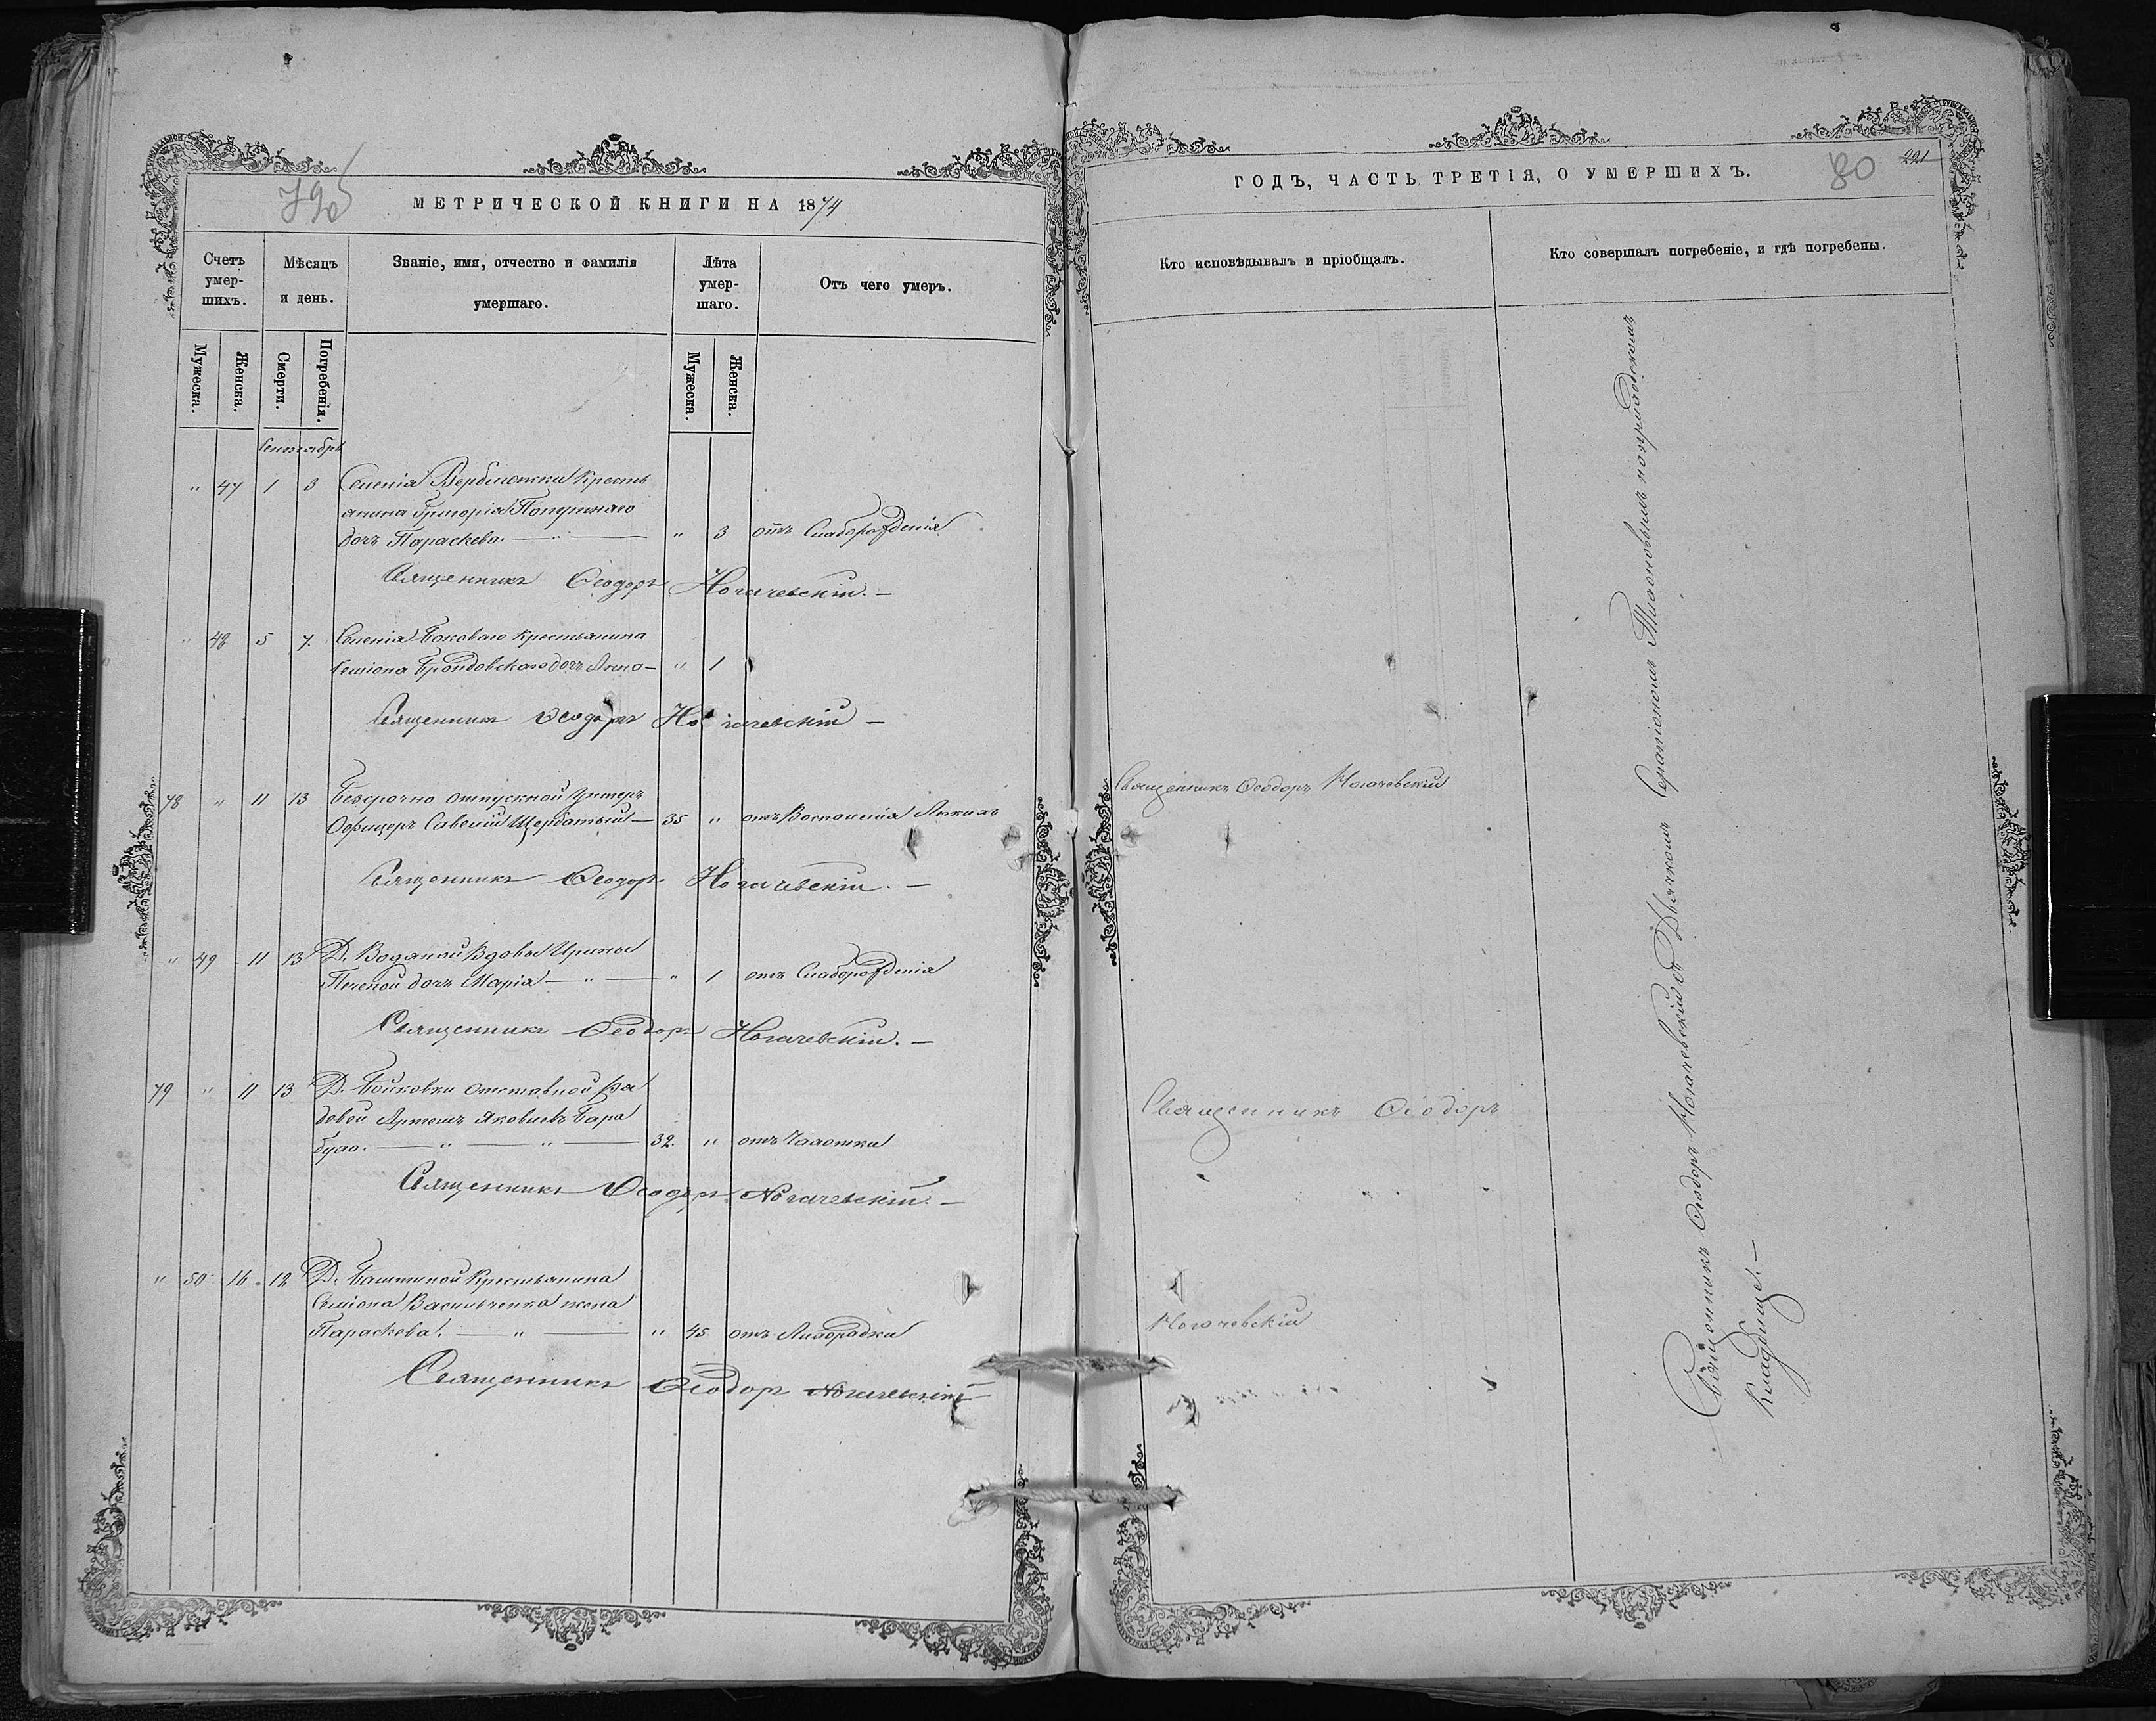 795
МЕТРИЧЕСКОЙ КНИГИ НА 1874
Счетъ умер-шихъ.
Мѣсяцъ и день.
Званіе, имя, отчество и фамилія умершаго.
Лѣта умер-шаго.
Отъ чего умеръ.
Мужеска.
Женска.
Смерти.
Погребенія.
Мужеска.
Женска.
Сентябрь
" 47 1 3 Селенія Вербложки Кресть
янина Григорія Попутнаго
дочь Параскева. — " — " 3 отъ Слаборожденія
Священникъ Ѳеодоръ Ногачевскій. —
" 48 5 7. Селенія Боковаго крестьянина
Семіона Брондовскаго дочь Анна — " 1
Священникъ Ѳеодоръ Ногачевскій —
78 " 11 13 Безсрочно отпускной Унтеръ
Офицеръ Савелій Щербатый — 35 " отъ Воспаленія Легкихъ
Священникъ Ѳеодоръ Ногачевскій. —
" 49 11 13 Д. Водяной Вдовы Ирины
Печеной дочь Марія — " — " 1 отъ Слаборожденія
Священникъ Ѳеодоръ Ногачевскій. —
79 " 11 13 Д. Бойковки отставной ря
довой Артемъ Яковлевъ Бара
— " — " — 32. " отъ Чахотки
Священникъ Ѳеодоръ Ногачевскій. —
" 50 16 18 Д. Баштиной Крестьянина
Семіона Васильченка жена
Параскева. — " — " 45 отъ Лихорадки
Священникъ Ѳеодоръ Ногачевскій
ГОДЪ, ЧАСТЬ ТРЕТІЯ, О УМЕРШИХЪ.
80
221
Кто исповѣдывалъ и пріобщалъ.
Кто совершалъ погребеніе, и гдѣ погребены.
Священникъ Ѳеодоръ Ногачевскій
Священникъ Ѳеодоръ
Ногачевскій
Священникъ Ѳеодоръ Ногачевскій съ Дьячкомъ Серапіономъ Тихоновымъ на приходскомъ
кладбище. —